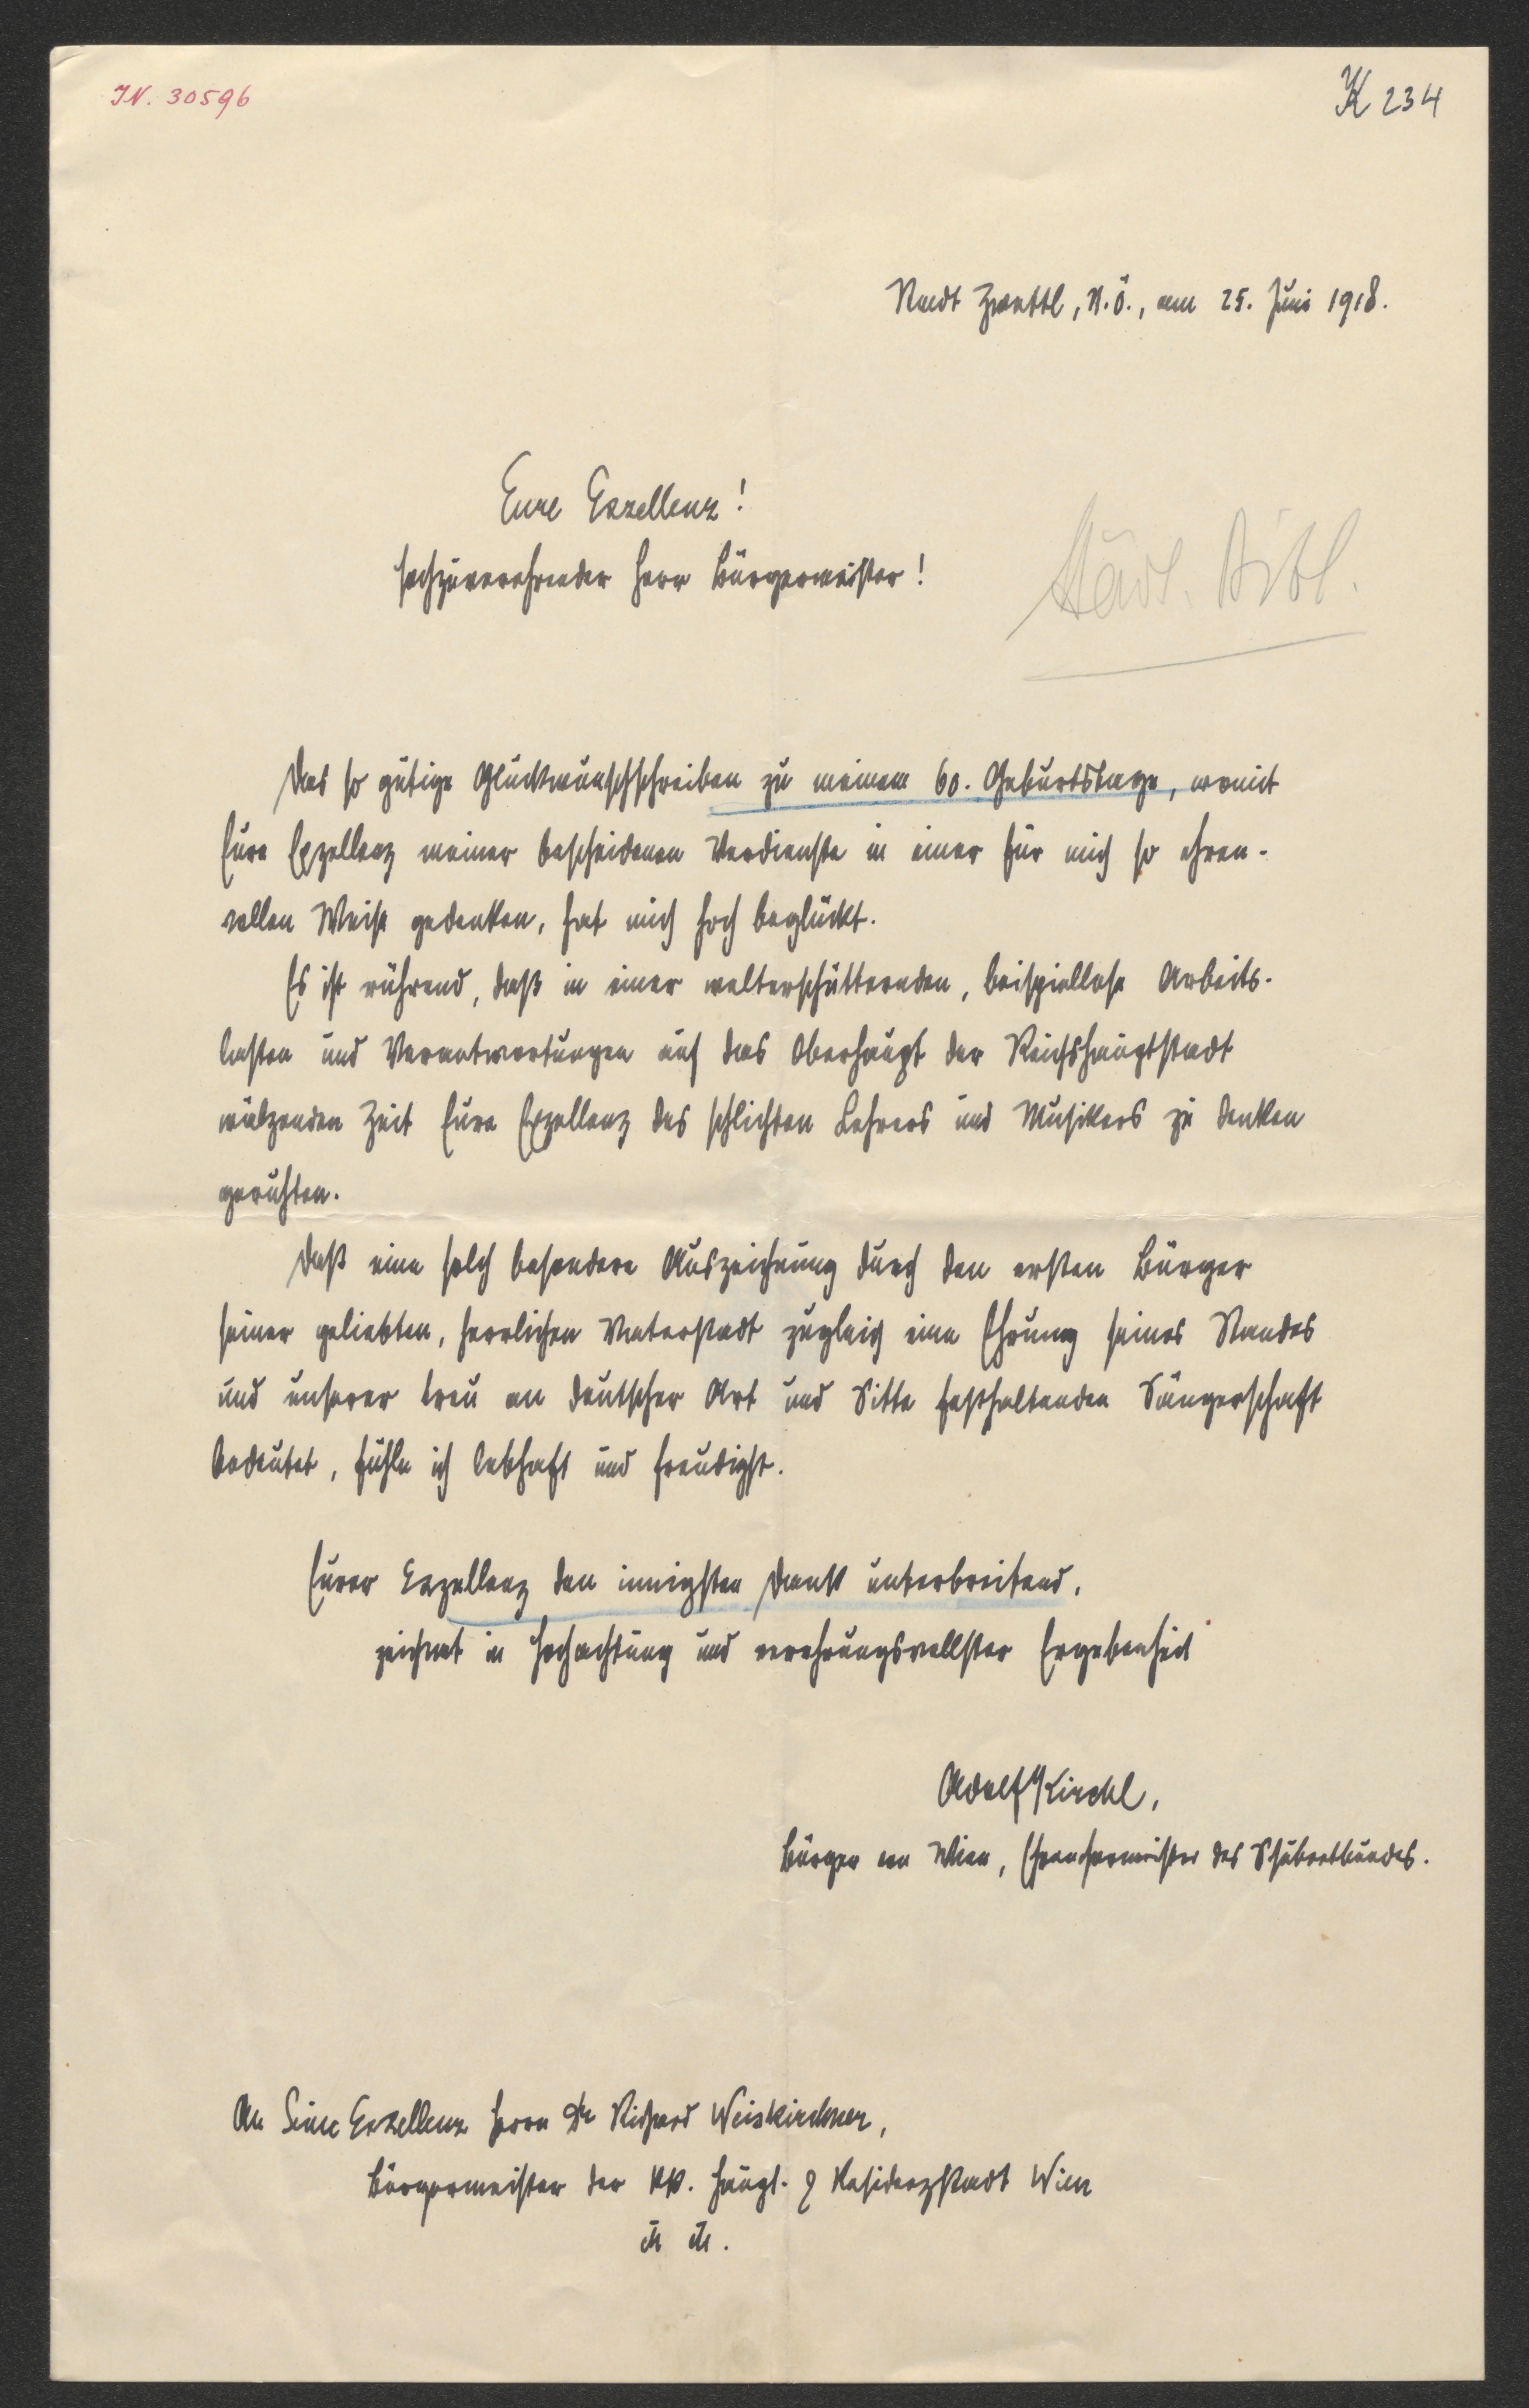 IN. 30596
K 234
Stadt Zwettl, N.Ö., am 25. Juni 1918.
Eure Exzellenz!
Hochzuverehrender Herr Bürgermeister!
Städt. Bibl.
Das so gütige Glückwunschschreiben zu meinem 60. Geburtstage, womit
Eure Exzellenz meiner bescheidenen Verdienste in einer für mich so ehren-
vollen Weise gedenken, hat mich hoch beglückt.
Es ist rührend, daß in einer welterschütternden, beispiellose Arbeits-
lasten und Verantwortungen auf das Oberhaupt der Reichshauptstadt
wälzenden Zeit Eure Exzellenz des schlichten Lehrers und Musikers zu denken
geruhten.
Daß eine solch besondere Auszeichnung durch den ersten Bürger
seiner geliebten, herrlichen Vaterstadt zugleich eine Ehrung seines Standes
und unserer treu an deutscher Art und Sitte festhaltenden Sängerschaft
bedeutet, fühle ich lebhaft und freudigst.
Eurer Exzellenz den innigsten Dank unterbreitend,
zeichnet in Hochachtung und verehrungsvollster Ergebenheit
Adolf Kirchl,
Bürger von Wien, Ehrenchormeister des Schubertbundes.
An Seine Exzellenz Herrn Dr Richard Weiskirchner,
Bürgermeister der kk. Haupt- & Residenzstadt Wien